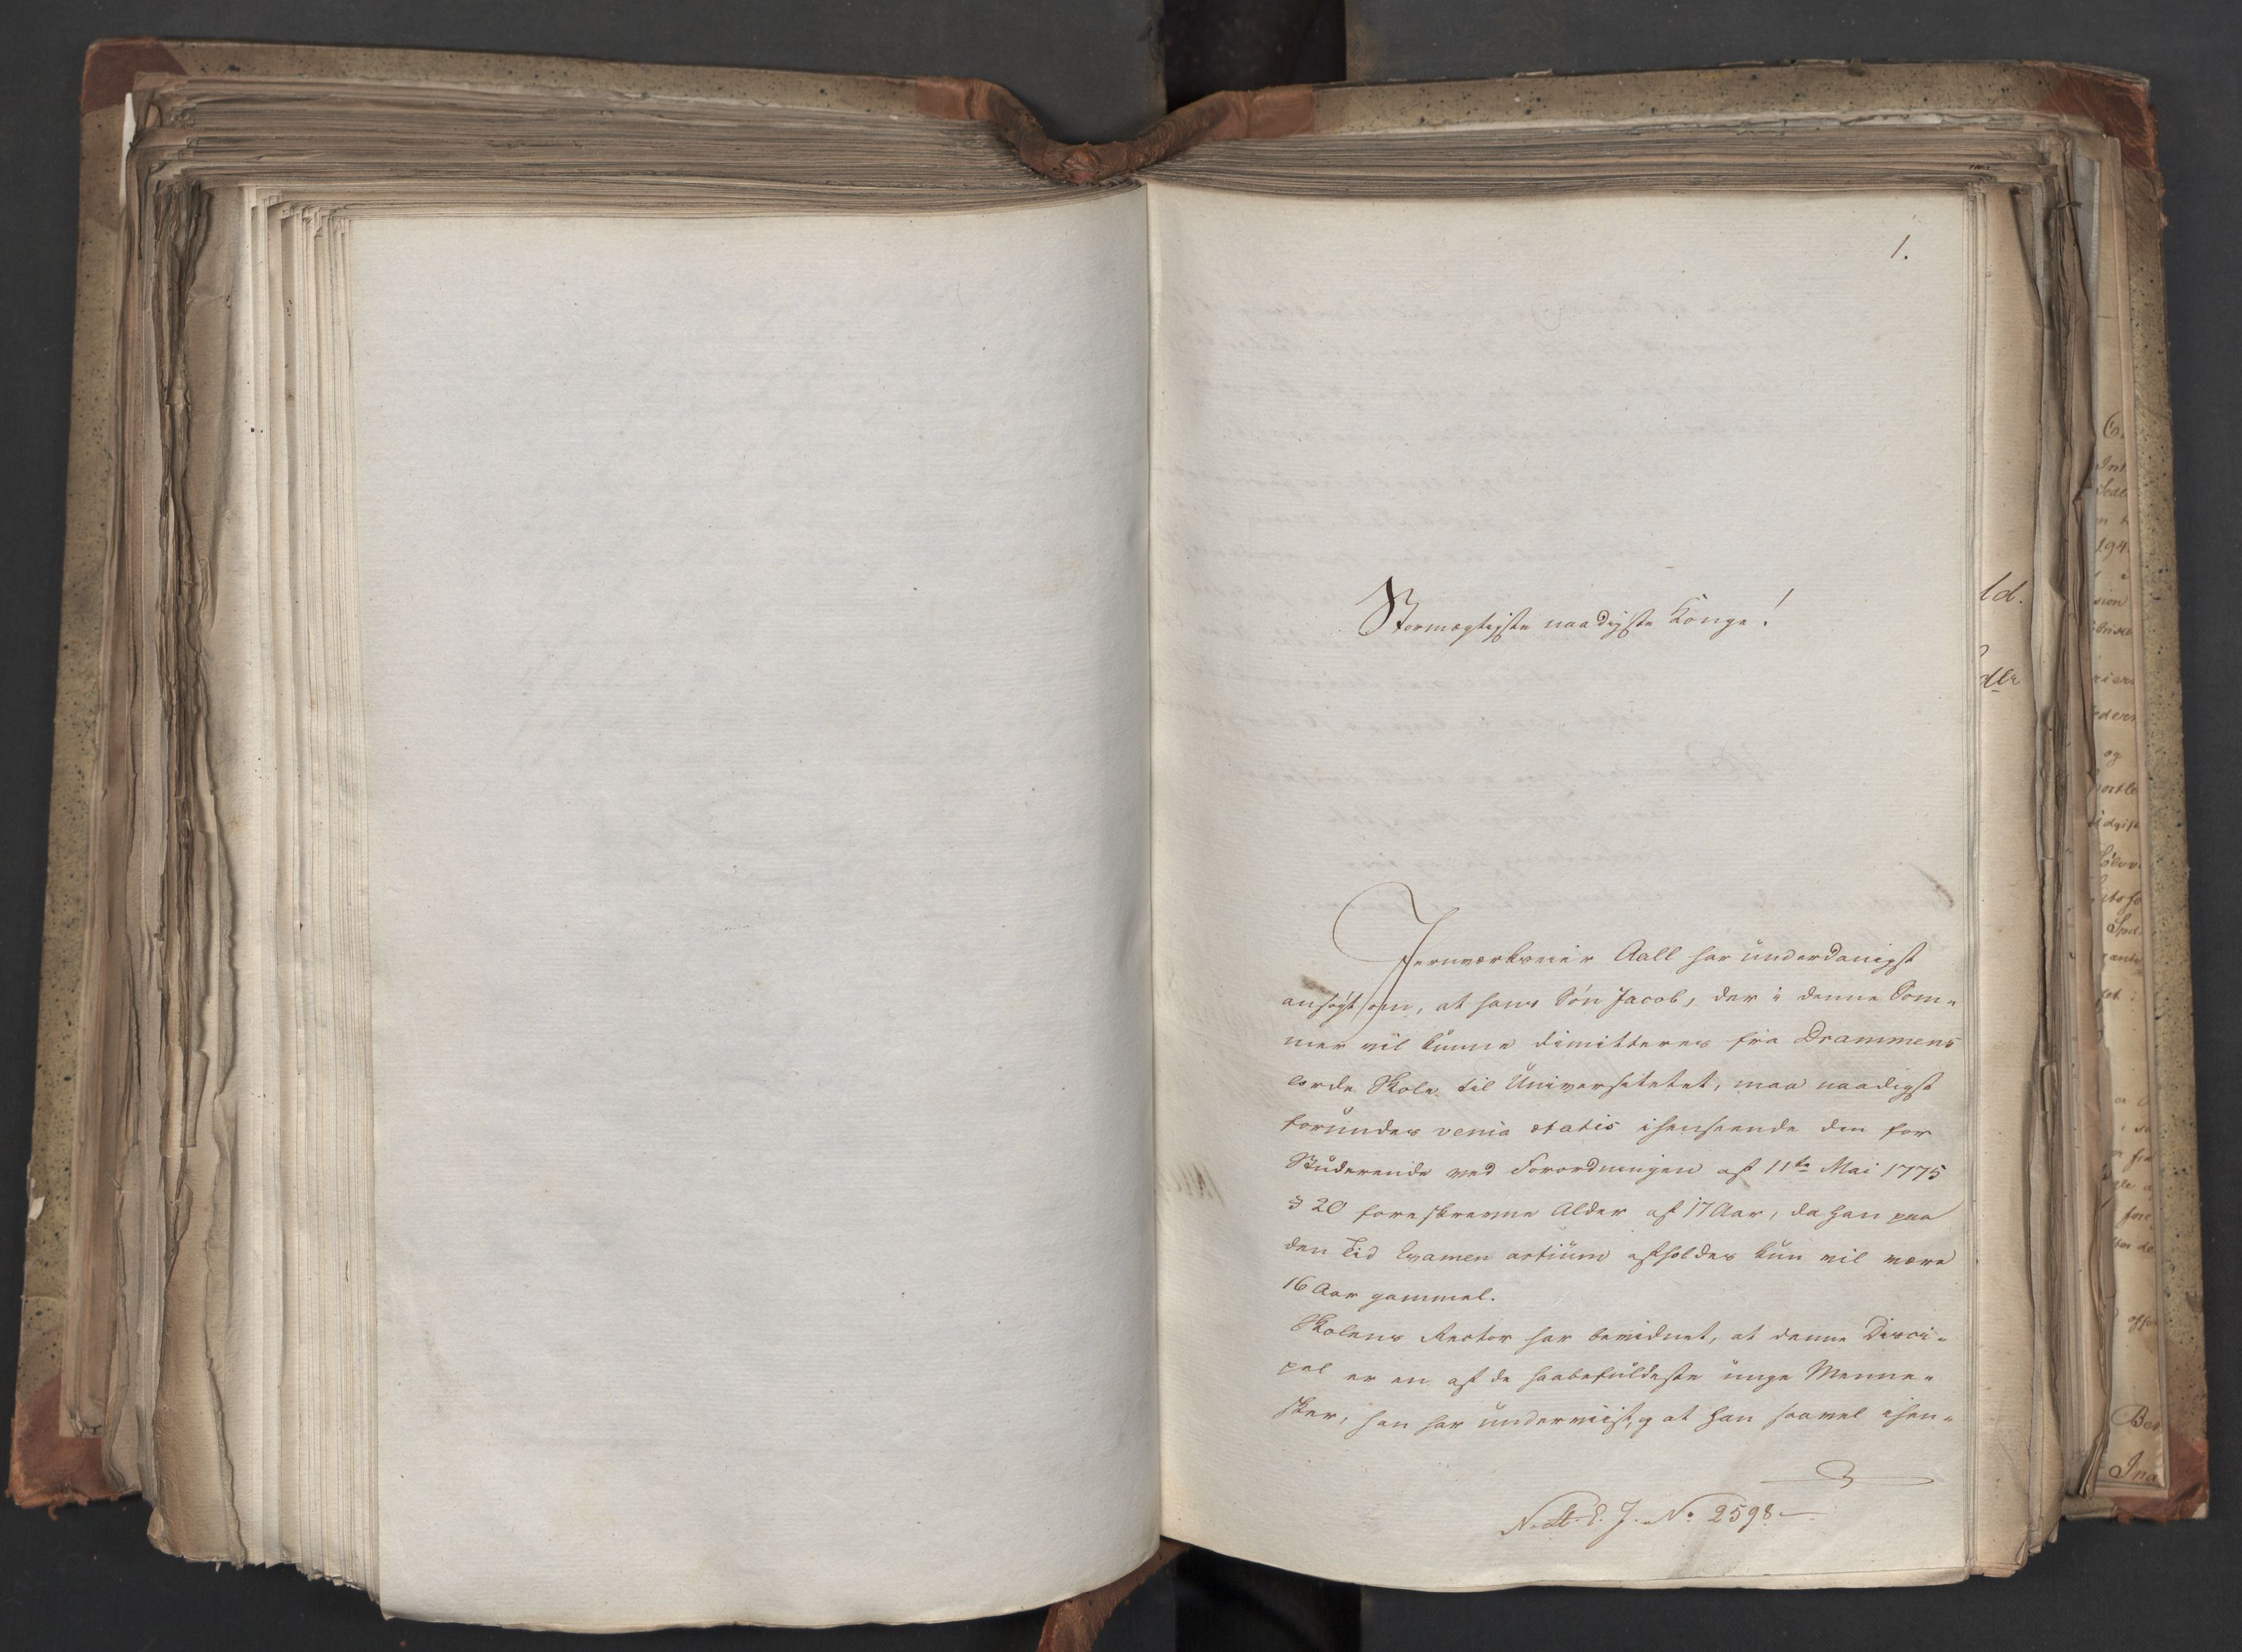 1.
Stormægtigste naadigste Konge!
Jernværkseier Aall har underdanigst
ansøgt om, at hans Søn Jacob, der i denne Som-
mer vil kunne dimitteres fra Drammens
lærde Skole til Universitetet, maa naadigst
forundes venia ætatis ihenseende den for
Studerende ved Forordningen af 11te Mai 1775
§ 20 foreskrevne Alder af 17 Aar, da han paa
den Tid Examen artium afholdes kun vil være
16 Aar gammel.
Skolens Rector har bevidnet, at denne Disci-
pel er en af de haabefuldeste unge Menne-
sker, han har underviist, og at han saavel ihen-
No 2598
ld.